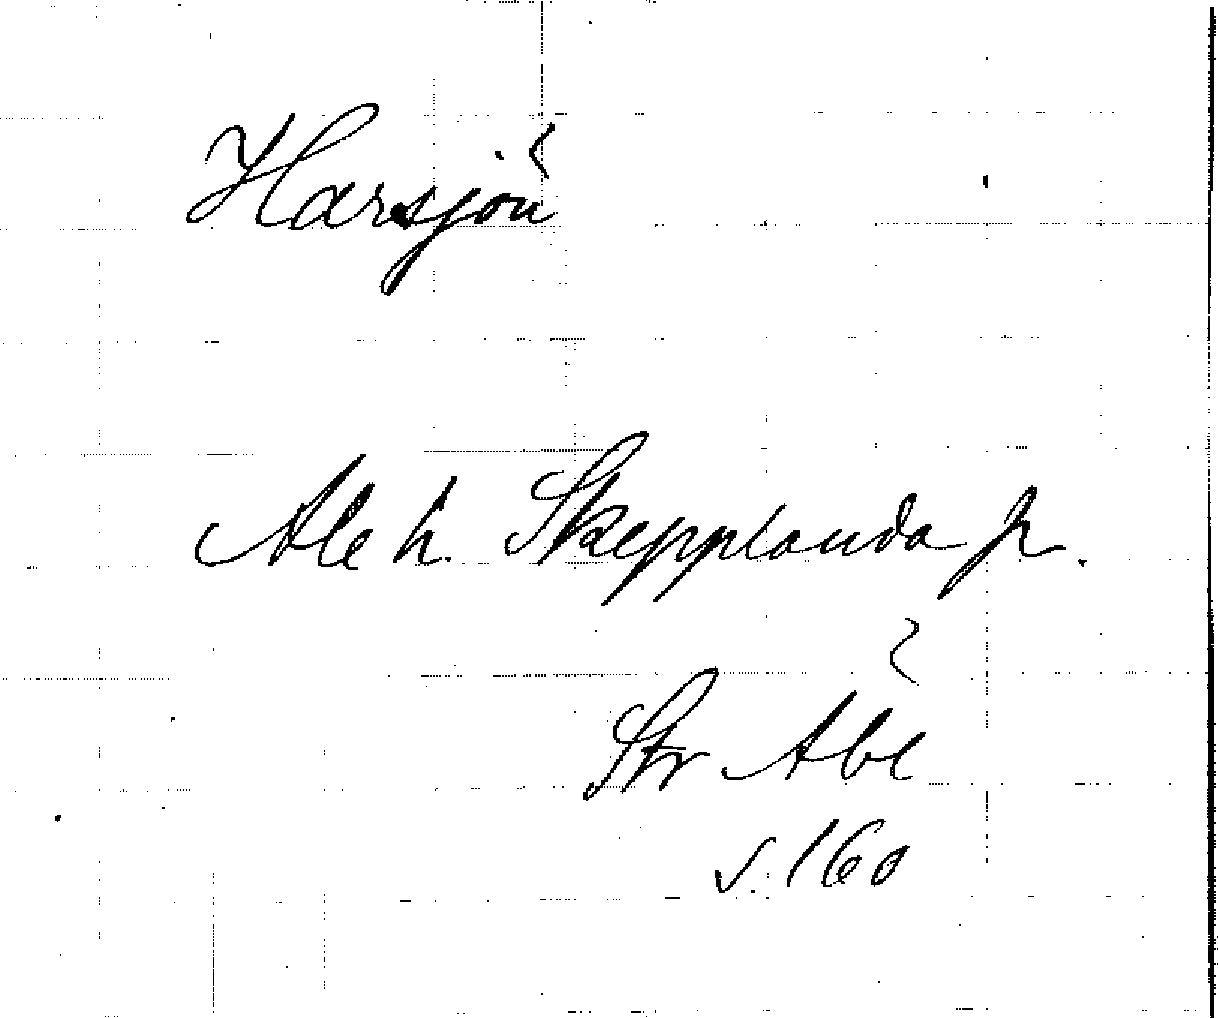 Harsjön
Ale h. Skepplanda sn.
Str Abl
s. 160